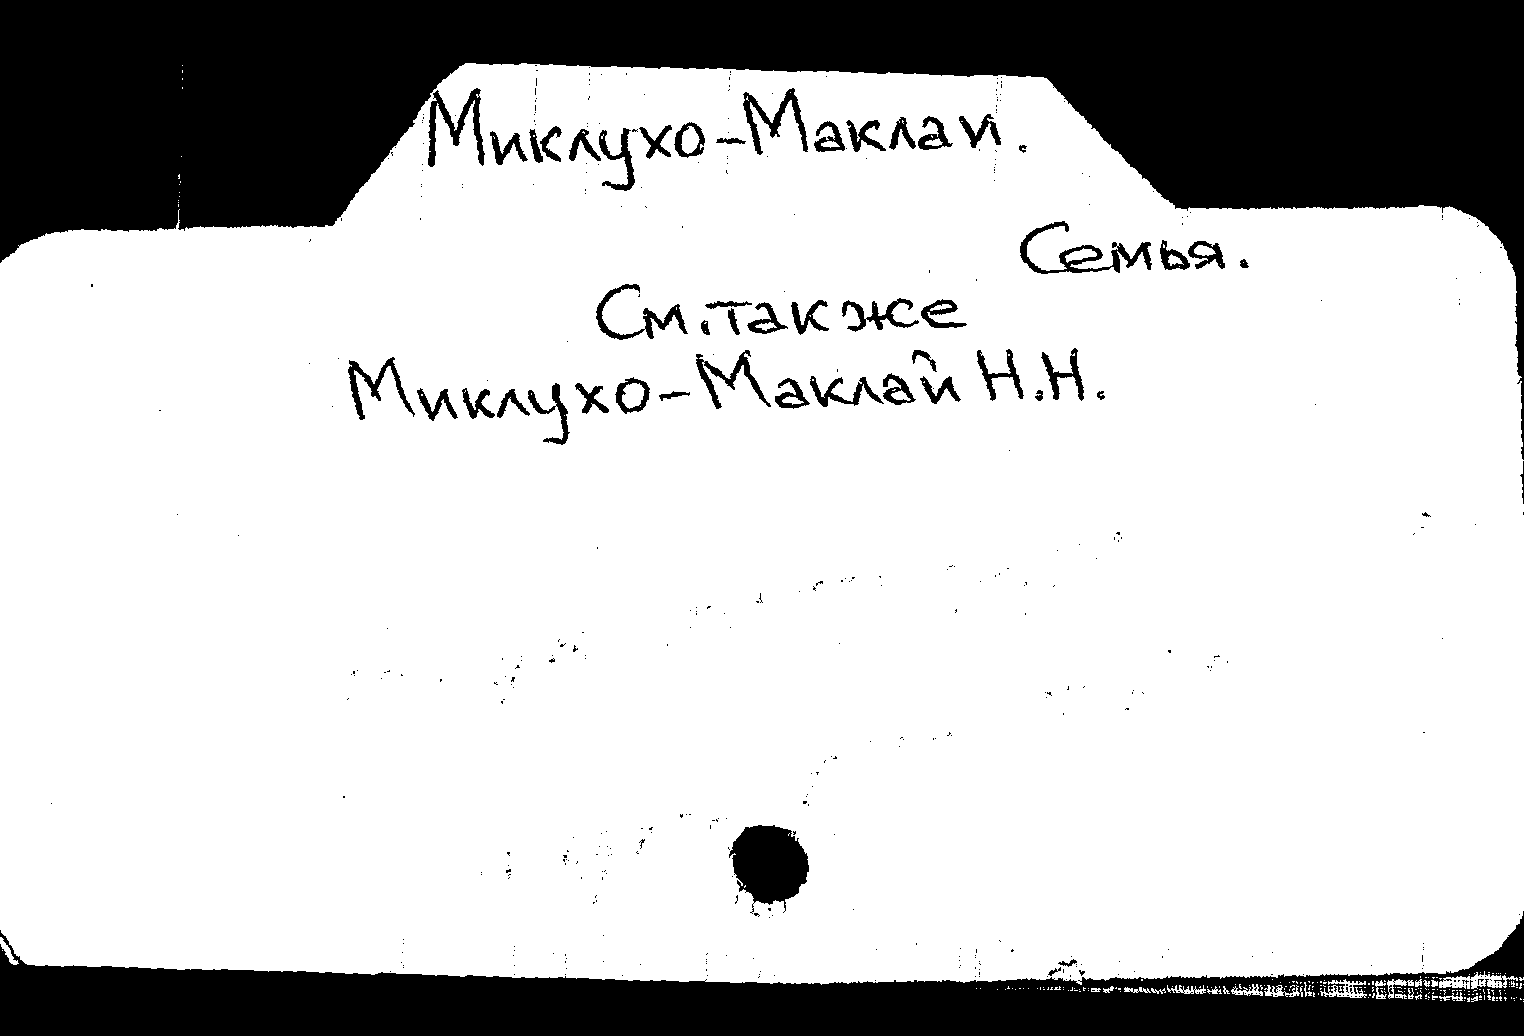 Миклухо-Маклаи.
Семья.
См. также
Миклухо-Маклай Н.Н.